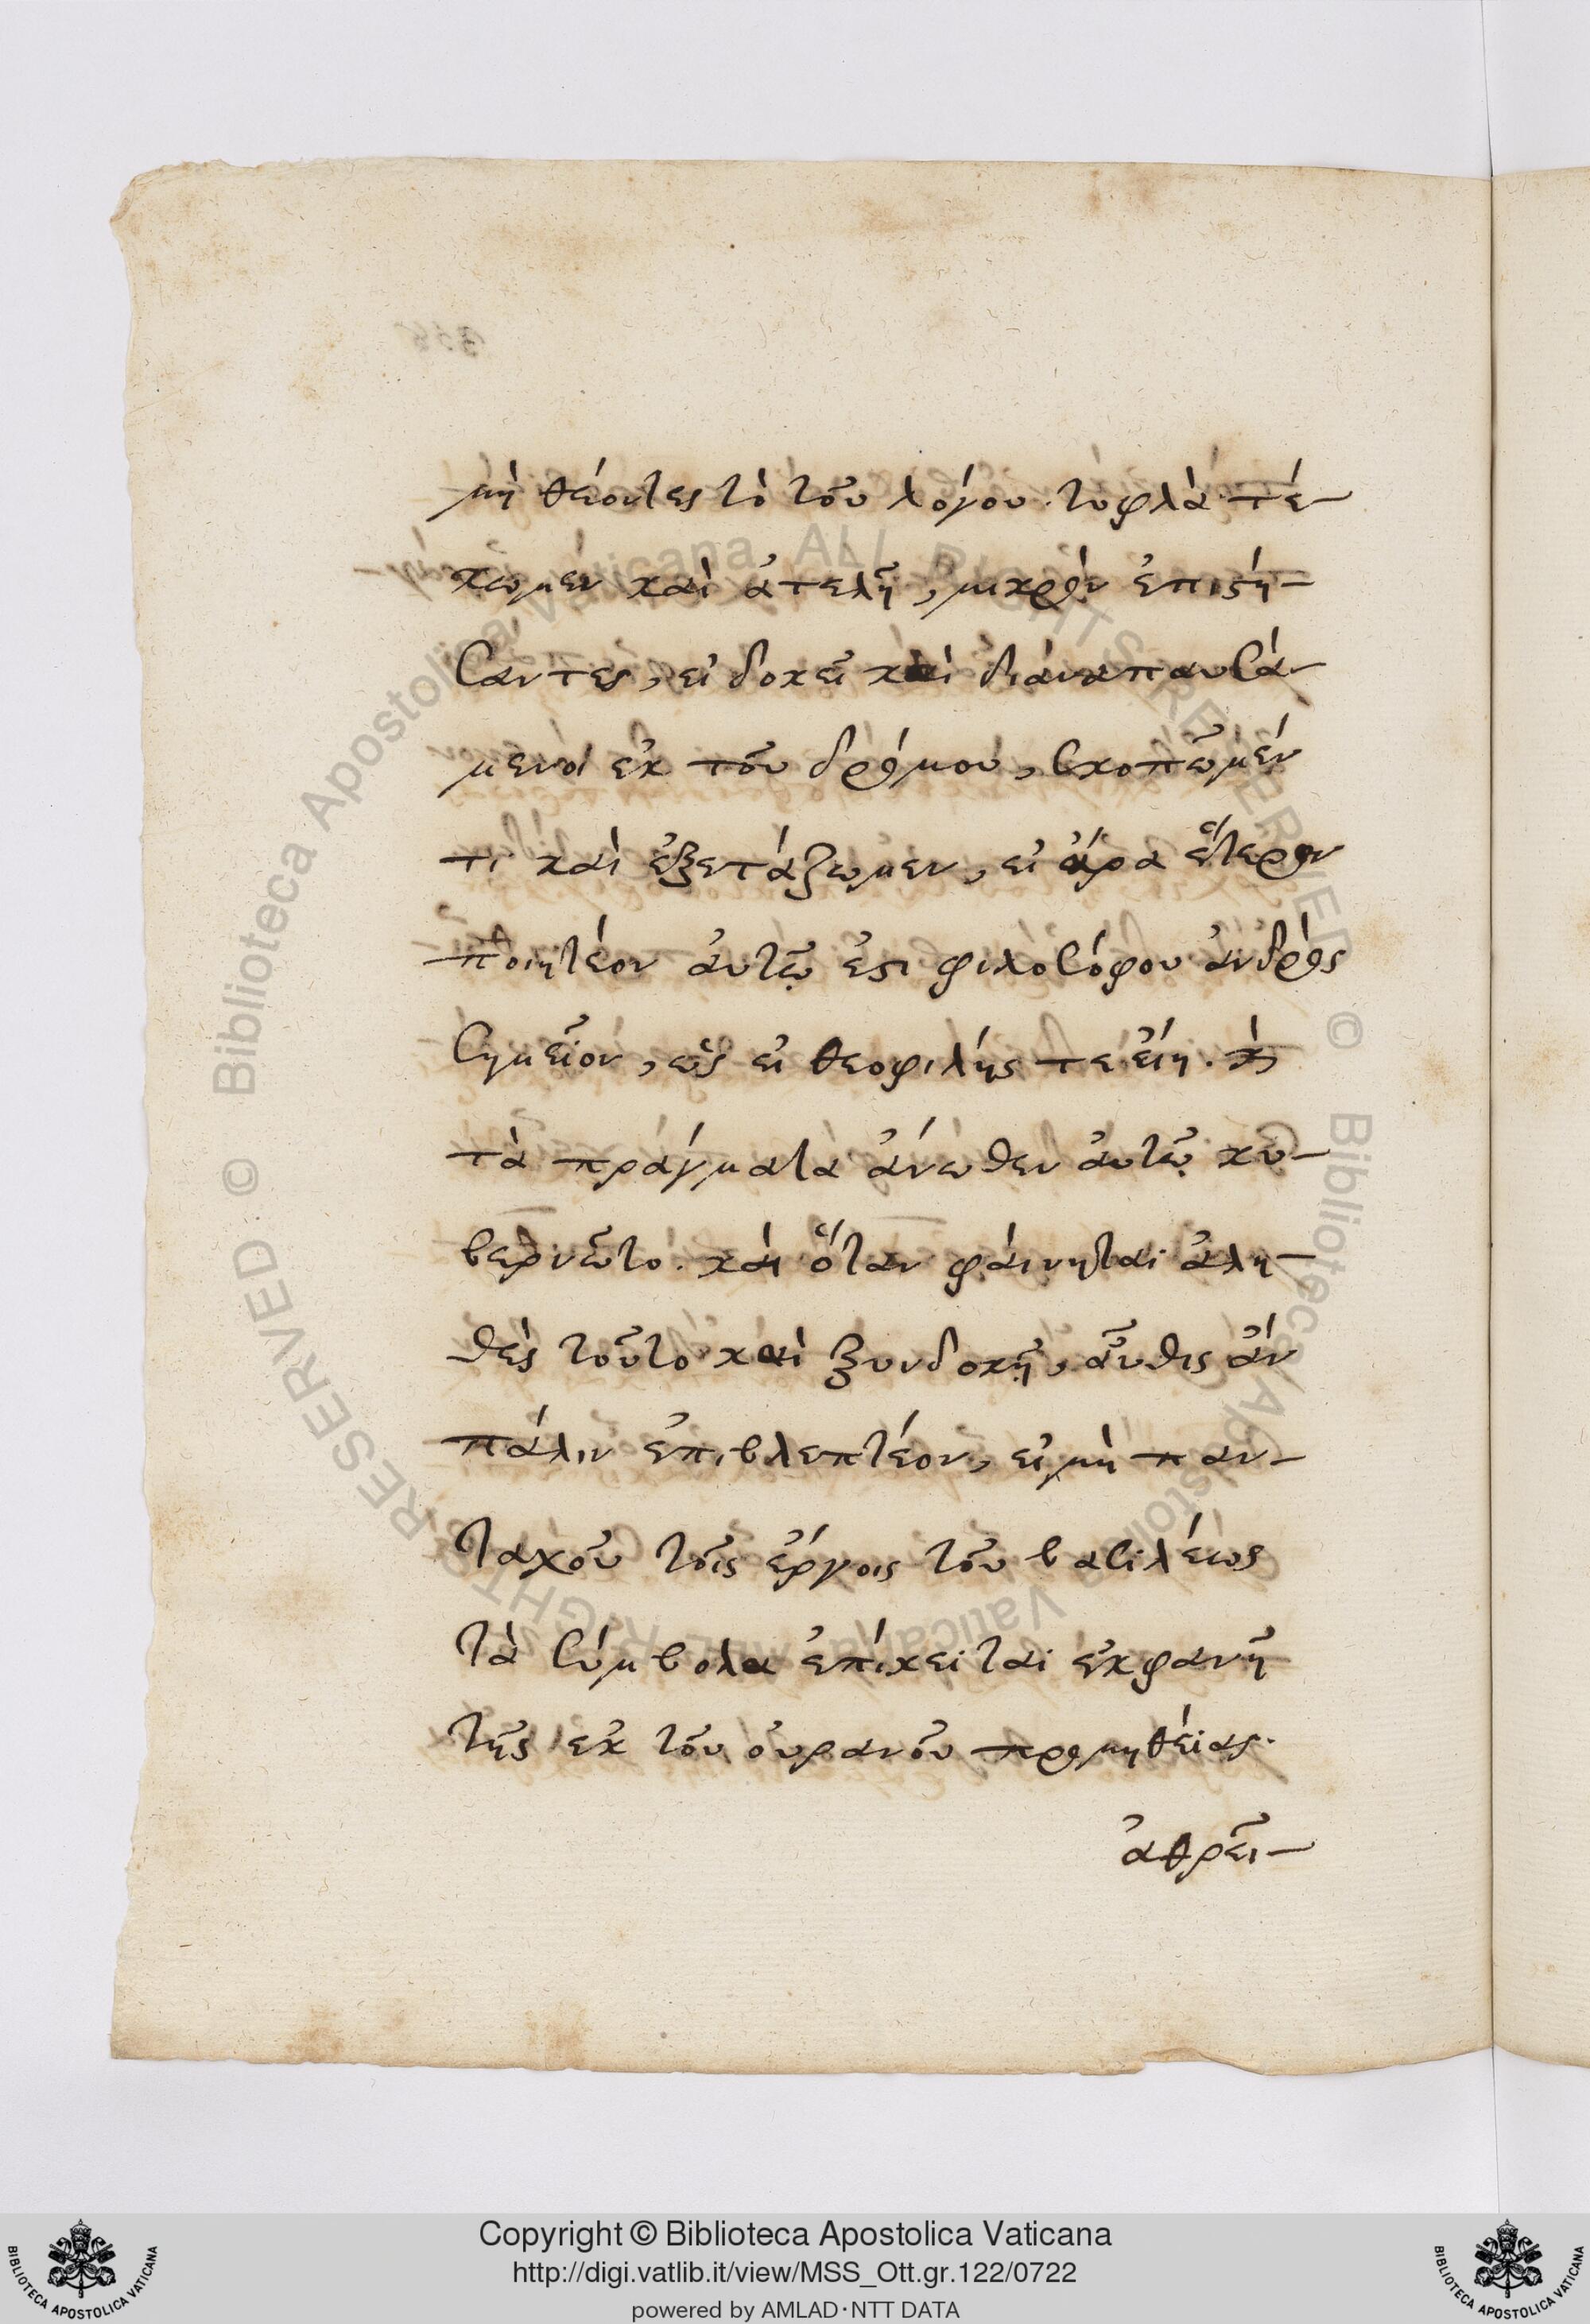 μὴ θέοντες τὸ τοῦ λόγου. τυφλὰ τέ-
κωμεν καὶ ἀτελῆ, μικρὸν ἐπιστή-
σαντες, εἰ δοκεῖ καὶ διαναπαυσά-
μενοι ἐκ τοῦ δρόμου, σκοπῶμέν
τι καὶ ἐξετάζωμεν, εἰ ἄρα ἕτερον
ποιητέον ἀυτῷ ἐστι φιλοσόφου ἀνδρὸς
σημεῖον, ὡς εἰ θεοφιλής τε εἴη. καὶ
τὰ πράγματα ἄνωθεν ἀυτῷ κυ-
βερνῶτο. κἂι ὅταν φάινηται ἀλη-
θὲς τοῦτο καὶ ξυνδοκῇ, ἀῦθις ἂν
πάλιν ἐπιβλεπτέον, εἰ μὴ παν-
ταχοῦ τοῖς ἔργοις τοῦ βασιλέως
τὰ σύμβολα ἐπίκειται ἐκφανῆ
τῆς ἐκ τοῦ ὀυρανοῦ προμηθείας.
ἀθρεῖ-
Copyright © Biblioteca Apostolica Vaticana
http://digi.vatlib.it/view/MSS_Ott.gr.122/0722
powered by AMLAD·NTT DATA
BIBLIOTECA APOSTOLICA VATICANA
BIBLIOTECA APOSTOLICA VATICANA